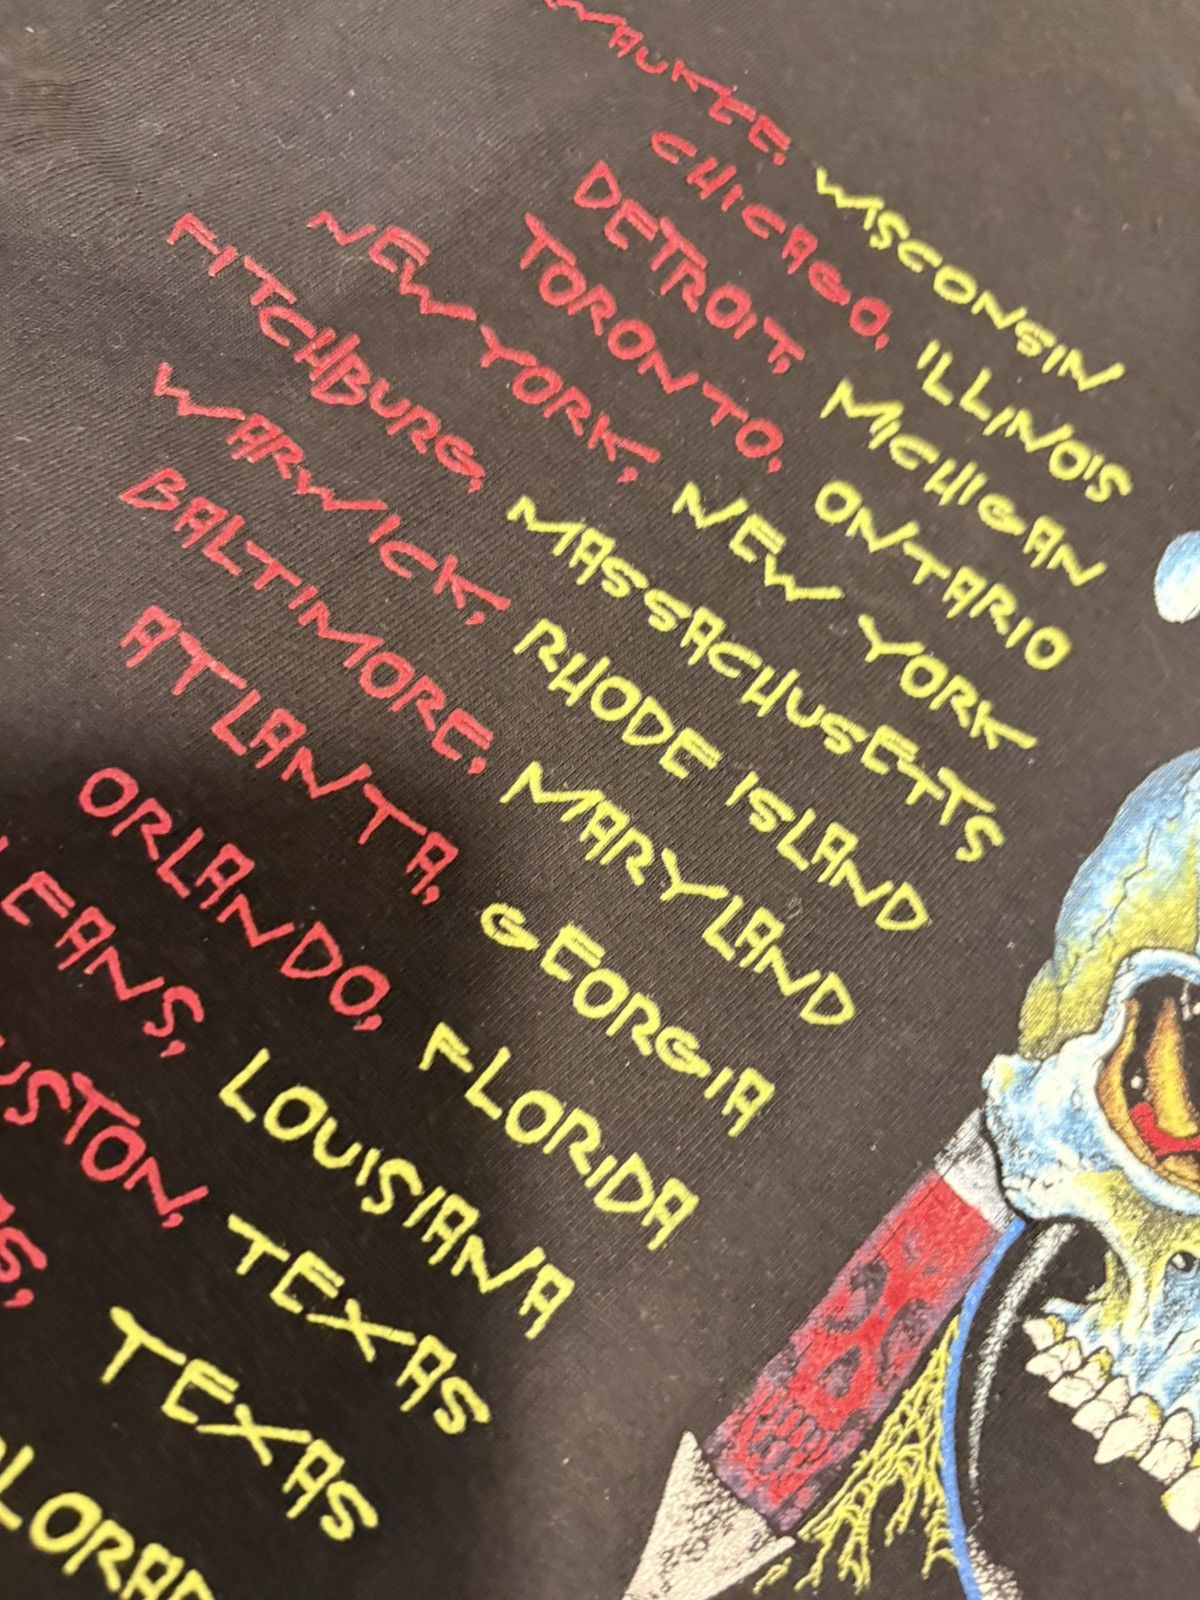 WAUKEE, WISCONSIN
CHICAGO, ILLINOIS
DETROIT, MICHIGAN
TORONTO, ONTARIO
NEW YORK, NEW YORK
FITCHBURG, MASSACHUSETTS
WARWICK, RHODE ISLAND
BALTIMORE, MARYLAND
ATLANTA, GEORGIA
ORLANDO, FLORIDA
LEANS, LOUISIANA
USTON, TEXAS
AS, TEXAS
LORAD